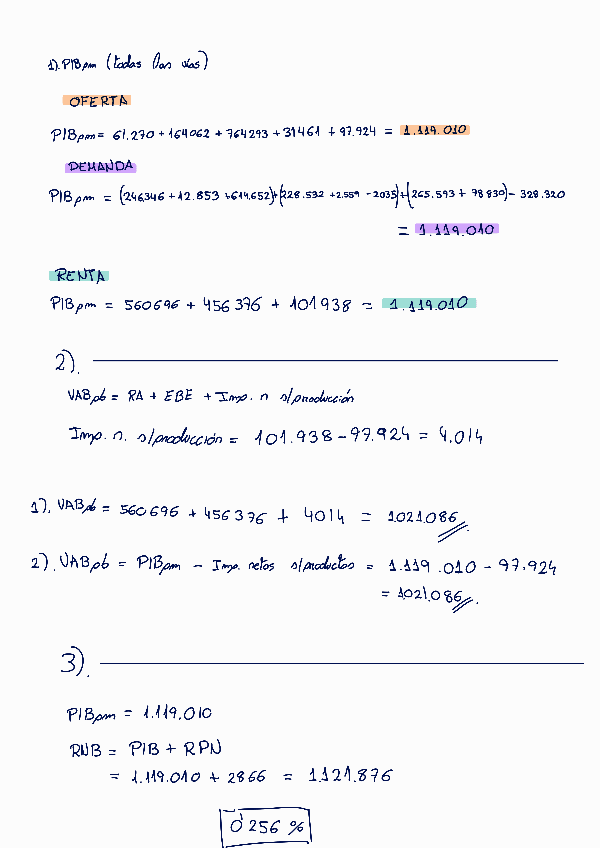 1). PIBpm (todas las vías)
OFERTA
PIBpm = 61.270 + 164062 + 764293 + 31461 + 97.924 = 1.119.010
DEMANDA
PIBpm = (246346 + 12.853 + 614.652) + (228.532 + 2.559 - 2035) + (265.593 + 78830) - 328.320
= 1.119.010
RENTA
PIBpm = 560696 + 456376 + 101938 = 1.119.010
2).
VABpb = RA + EBE + Imp. n s/producción
Imp. n. s/producción = 101.938 - 97.924 = 4.014
1). VABpb = 560696 + 456376 + 4014 = 1021.086
2). VABpb = PIBpm - Imp. netos s/productos = 1.119.010 - 97.924
= 1021.086
3).
PIBpm = 1.119.010
RNB = PIB + RPN
= 1.119.010 + 2866 = 1.121.876
0'256 %